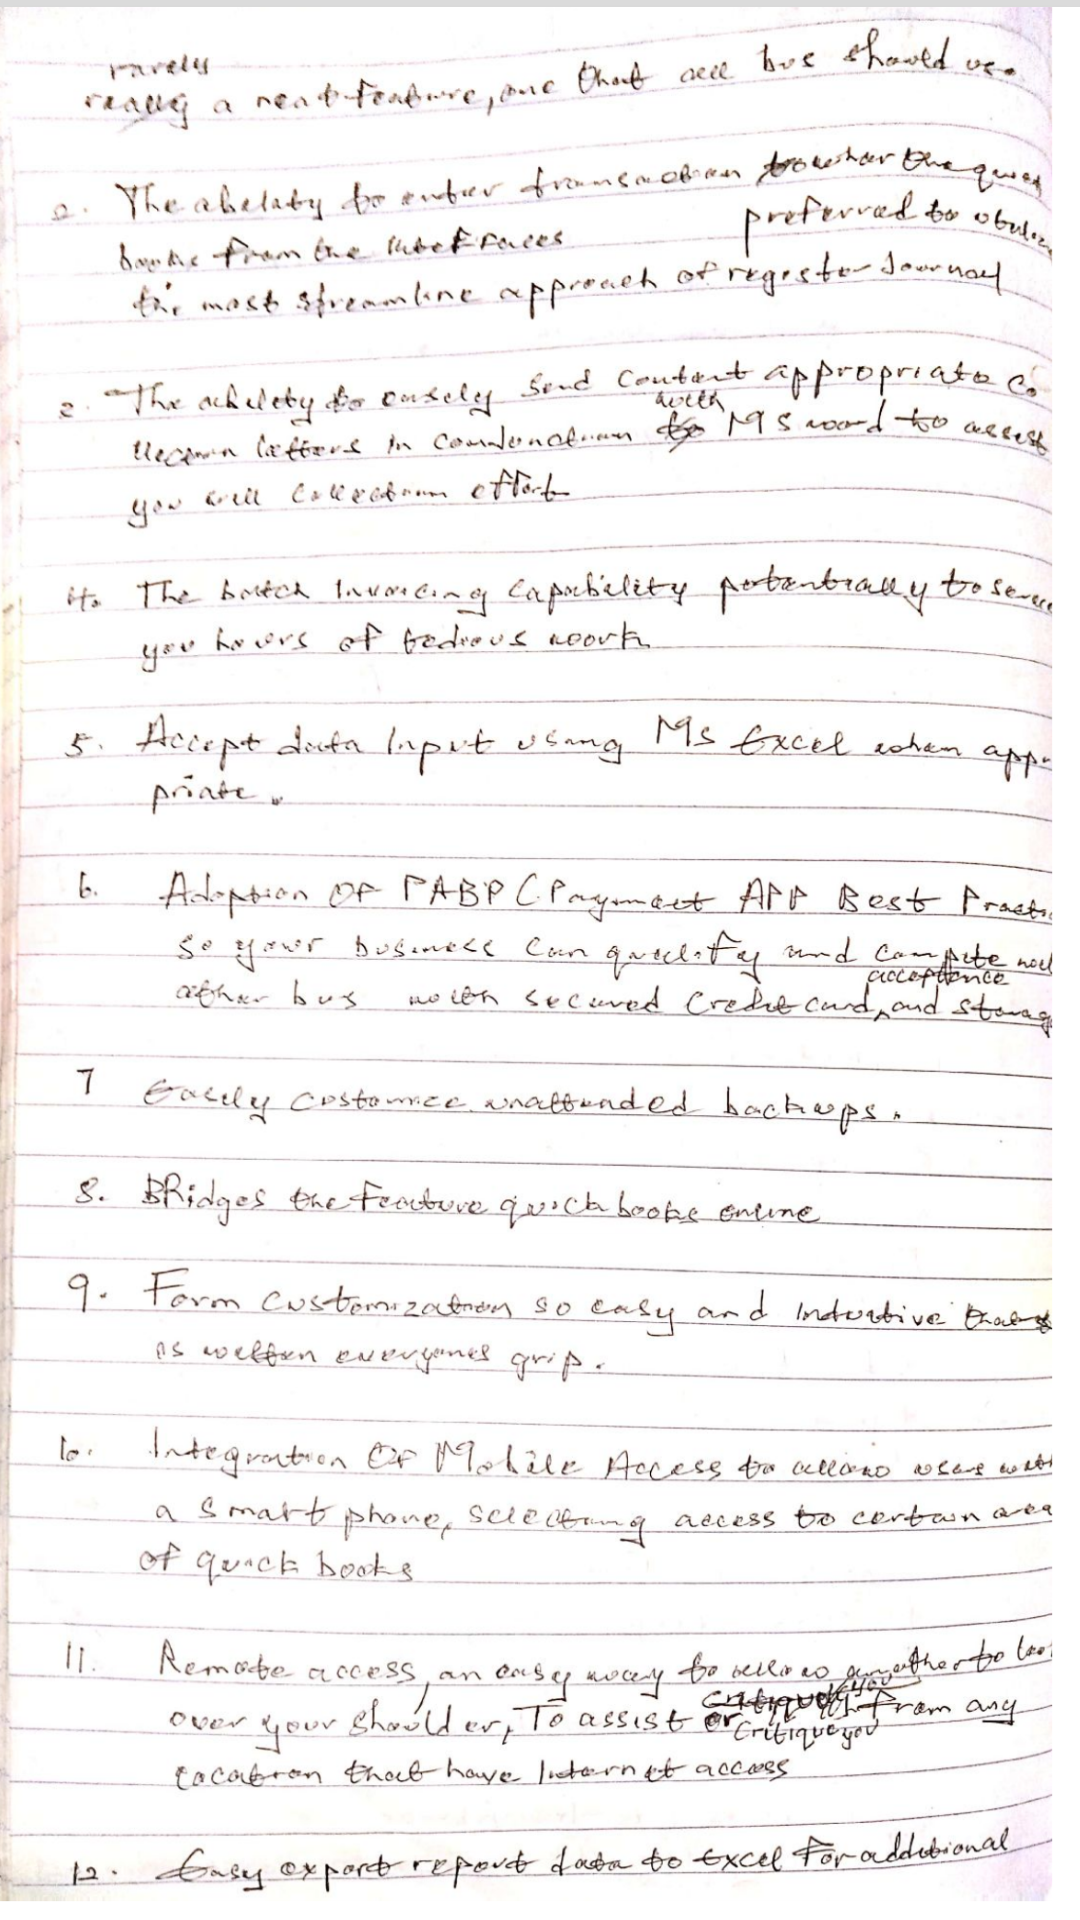 rarely
really a neat feature, one that all bus should use
2. The abelaty to enter transaction whether the quick
books from the interfaces preferred to utulize
the most streamline approach of register Journal
2. The abelety to easely Send Content appropriate Co
llecion letters in Conjunction with MS word to assest
you will Collection effort
4. The batch Invoicing Capability potentially to save
you hours of tedious work
5. Accept data Input using Ms Excel when appr
priate.
6. Adoption OF PABP (Payment APP Best Practi
so your business Can qualify and Compete well
other bus with secured Credit card acceptance and storag
7 Easily Costomize unattended backups.
8. BRidges the feature quick books online
9. Form Customization so easy and Intuitive that
is within everyones grip.
10. Integration OF Mobile Access to allow users with
a Smart phone, selecting access to certain area
of quick books
11. Remote access, an easy way to allow another to loo
over your shoulder, To assist or Critique you from any
location that have Internet access
12. Easy export report data to Excel For additional